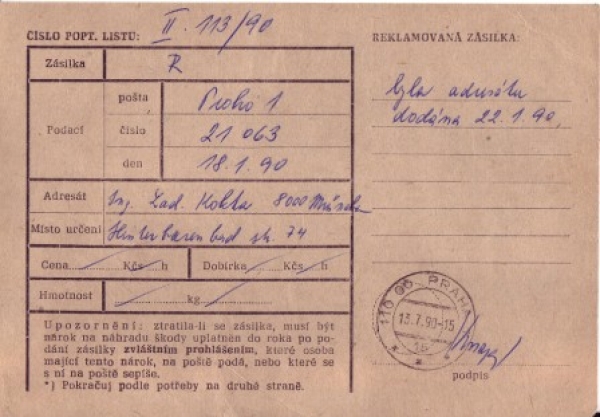 ČÍSLO POPT. LISTU: II. 113/90
Zásilka R
Podací
pošta Praha 1
číslo 21 063
den 18.1.90
Adresát Ing. Lad. Kokta 8000
Místo určení str. 74
Cena Kčs h Dobírka Kčs h
Hmotnost kg
Upozornění: ztratila-li se zásilka, musí být
nárok na náhradu škody uplatněn do roka po po-
dání zásilky zvláštním prohlášením, které osoba
mající tento nárok, na poště podá, nebo které se
s ní na poště sepíše.
*) Pokračuj podle potřeby na druhé straně.
REKLAMOVANÁ ZÁSILKA:
byla adresátu
dodána 22.1.90.
110 00 PRAHA
13.7.90-15
podpis